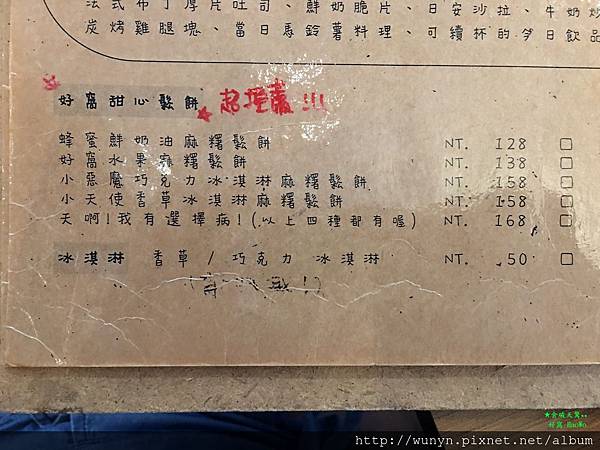 法式布丁厚片吐司、鮮奶脆片、日安沙拉、牛奶炒
炭烤雞腿塊、當日馬鈴薯料理、可續杯的今日飲品
好窩甜心鬆餅 超推薦!!!
蜂蜜鮮奶油麻糬鬆餅 NT. 128 □
好窩水果麻糬鬆餅 NT. 138 □
小惡魔巧克力冰淇淋麻糬鬆餅 NT. 158 □
小天使香草冰淇淋麻糬鬆餅 NT. 158 □
天啊!我有選擇病!(以上四種都有喔) NT. 168 □
冰淇淋 香草 / 巧克力 冰淇淋 NT. 50 □
★食破天驚..
好窩 HaoWo
http://wunyn.pixnet.net/album